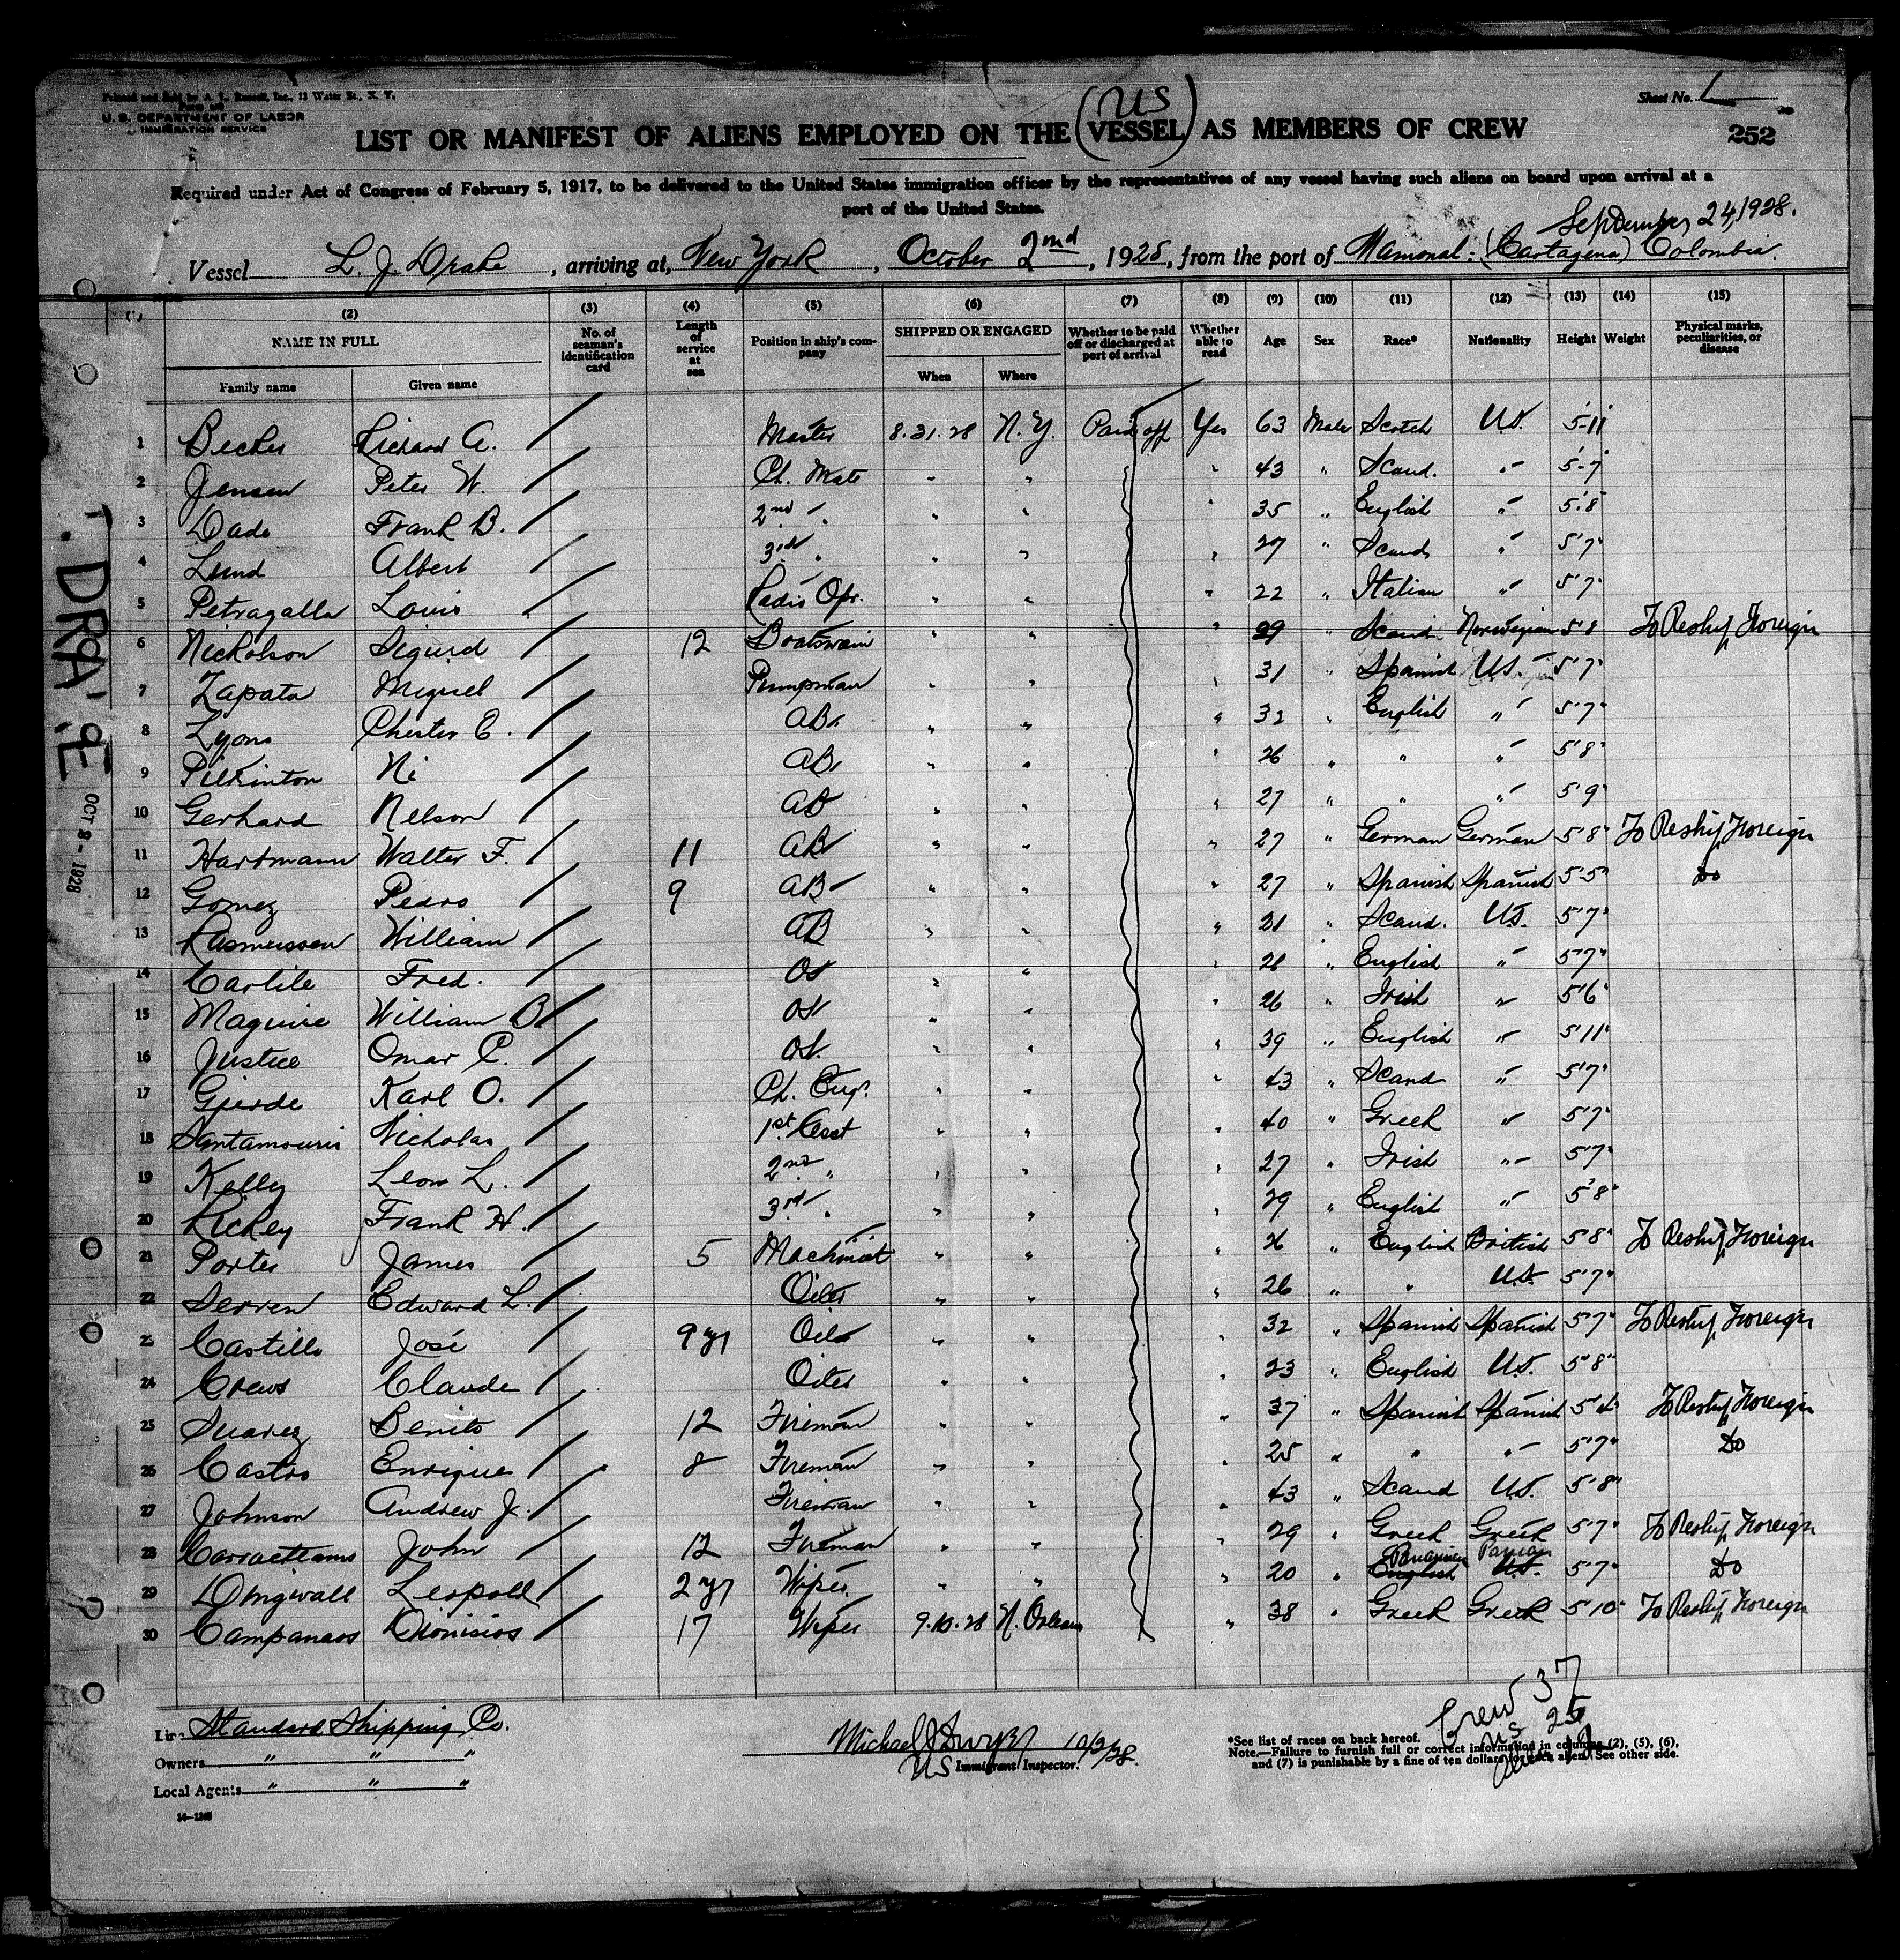 Printed and Sold by A. L. Russell, Inc., 13 Water St., N. Y.
U. S. DEPARTMENT OF LABOR
IMMIGRATION SERVICE
Sheet No. 1
252
(US)
LIST OR MANIFEST OF ALIENS EMPLOYED ON THE VESSEL AS MEMBERS OF CREW
Required under Act of Congress of February 5, 1917, to be delivered to the United States immigration officer by the representatives of any vessel having such aliens on board upon arrival at a
port of the United States.
September 24, 1928.
Vessel L. J. Drake, arriving at, New York, October 2nd, 1928, from the port of Mamonal: (Cartagena) Colombia.
(1) (2) (3) (4) (5) (6) (7) (8) (9) (10) (11) (12) (13) (14) (15)
NAME IN FULL No. of seaman's identification card Length of service at sea Position in ship's company SHIPPED OR ENGAGED Whether to be paid off or discharged at port of arrival Whether able to read Age Sex Race* Nationality Height Weight Physical marks, peculiarities, or disease
Family name Given name When Where
1 Becker Richard A. / Master 8.31.28 N.Y. Paid off Yes 63 Male Scotch US. 5-11
2 Jensen Peter W. / Ch. Mate " " " 43 " Scand. " 5-7
3 Dade Frank B. / 2nd " " " " 35 " English " 5'8
4 Lund Albert / 3rd " " " " 27 " Scand. " 5'7"
5 Petragalla Louis / Radio Opr. " " " 22 " Italian " 5'7"
6 Nicholson Sigurd / 12 Boatswain " " " 29 " Scand. Norwegian 5'8 To Reship Foreign
7 Zapata Miguel / Pumpman " " " 31 " Spanish US. 5'7"
8 Lyons Chester C. / AB. " " " 32 " English " 5'7"
9 Pilkinton Ni / AB. " " " 26 " " " 5'8"
10 Gerhard Nelson / AB " " " 27 " " " 5'9"
11 Hartmann Walter F. / 11 AB " " " 27 " German German 5'8" To Reship Foreign
12 Gomez Pedro / 9 AB " " " 27 " Spanish Spanish 5'5" Do
13 Rasmussen William / AB " " " 21 " Scand. US. 5'7"
14 Carlile Fred. / OS " " " 21 " English " 5'7"
15 Maguire William B / OS " " " 26 " Irish " 5'6"
16 Justice Omar C. / OS. " " " 39 " English " 5'11"
17 Gjerde Karl O. / Ch. Engr. " " " 43 " Scand " 5'7"
18 Santamouris Nicholas / 1st Asst " " " 40 " Greek " 5'7"
19 Kelley Leon L. / 2nd " " " " 27 " Irish " 5'7"
20 Rickey Frank H. / 3rd " " " " 29 " English " 5'8"
21 Porter James / 5 Machinist " " " 26 " English British 5'8" To Reship Foreign
22 Serren Edward L. / Oiler " " " 26 " " US. 5'7"
23 Castillo José / 9 yr Oiler " " " 32 " Spanish Spanish 5'7" To Reship Foreign
24 Crews Claude / Oiler " " " 23 " English US. 5'8"
25 Suarez Benito / 12 Fireman " " " 37 " Spanish Spanish 5'4" To Reship Foreign
26 Castro Enrique / 8 Fireman " " " 25 " " " 5'7" Do
27 Johnson Andrew J. / Fireman " " " 43 " Scand US. 5'8"
28 John / 12 Fireman " " " 29 " Greek Greek 5'7" To Reship Foreign
29 Dingwall Leopold / 2 yr Wiper " " " 20 " English US. 5'7" Do
30 Campanaos Dionisios / 17 Wiper 9.10.28 N. Orleans " 38 " Greek Greek 5'10" To Reship Foreign
DRAKE
OCT 2 - 1928
Crew 37
US 25
Line Standard Shipping Co.
Owners " " "
Local Agents " " "
14—1240
Michael J Dwyer 10/2/28.
US Immigrant Inspector.
*See list of races on back hereof.
Note.—Failure to furnish full or correct information in columns (2), (5), (6),
and (7) is punishable by a fine of ten dollars for each alien. See other side.